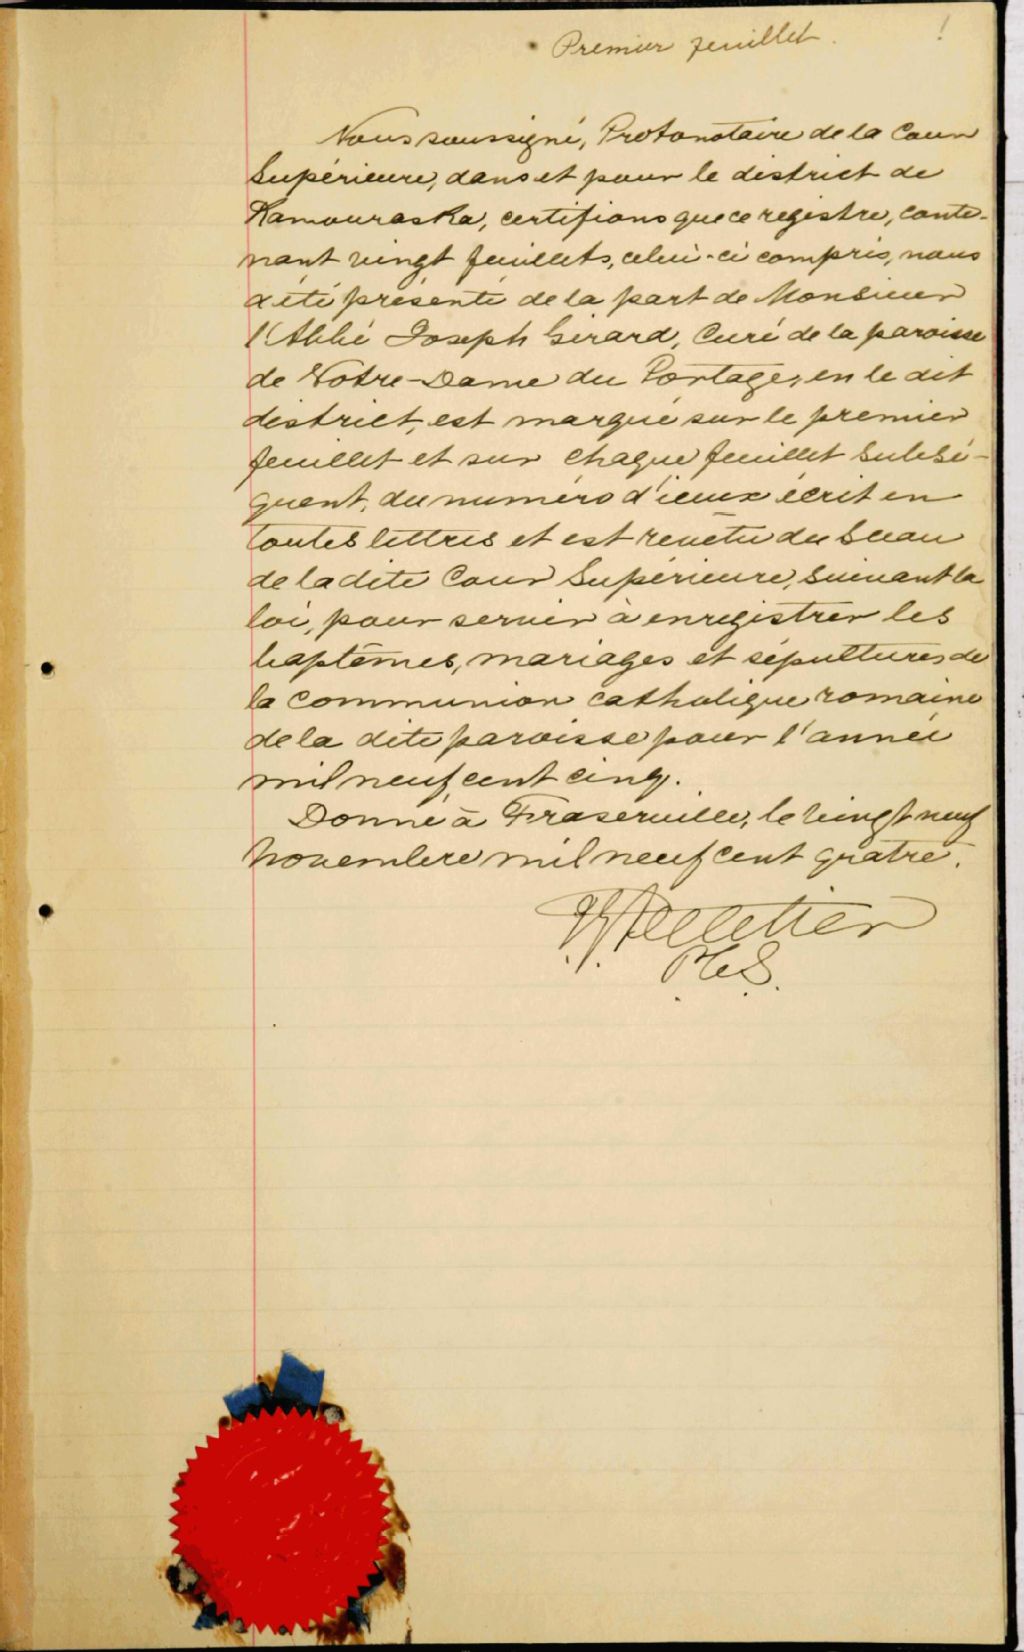 Premier feuillet.
Nous soussigné, Protonotaire de la Cour
Supérieure, dans et pour le district de
Kamouraska, certifions que ce registre, conte-
nant vingt feuillets, celui-ci compris, nous
a été présenté de la part de Monsieur
l'Abbé Joseph Girard, Curé de la paroisse
de Notre-Dame du Portage, en le dit
district, est marqué sur le premier
feuillet et sur chaque feuillet subsé-
quent, du numéro d'iceux écrit en
toutes lettres et est revêtu du Sceau
de la dite Cour Supérieure, suivant la
loi, pour servir à enregistrer les
baptêmes, mariages et sépultures de
la communion catholique romaine
de la dite paroisse pour l'année
mil neuf cent cinq.
Donné à Fraserville, le vingt neuf
novembre mil neuf cent quatre.
Pelletier
P.C.S.